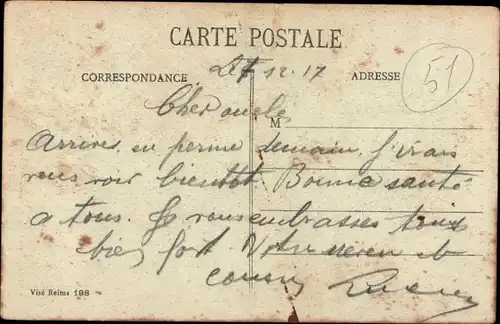 CARTE POSTALE
CORRESPONDANCE
Le 12.17
ADRESSE
51
Cher oncle
M
Arrives en perme demain. J'irais
vous voir bientot. Bonne santé
a tous. Je vous embrasses tous
bien fort. Votre neveu et
cousin
Visé Reims 198